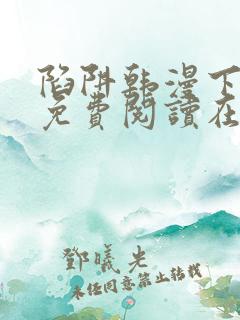 陷阱韩漫下
免費閱讀在
鄧曦光
未经同意禁止转载